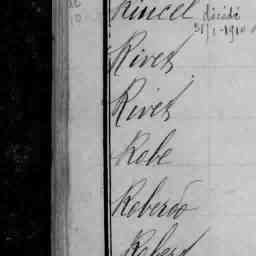 Rincel décédé
31/1-1910
Rivet
Rivet
Robe
Roberdo
Robert